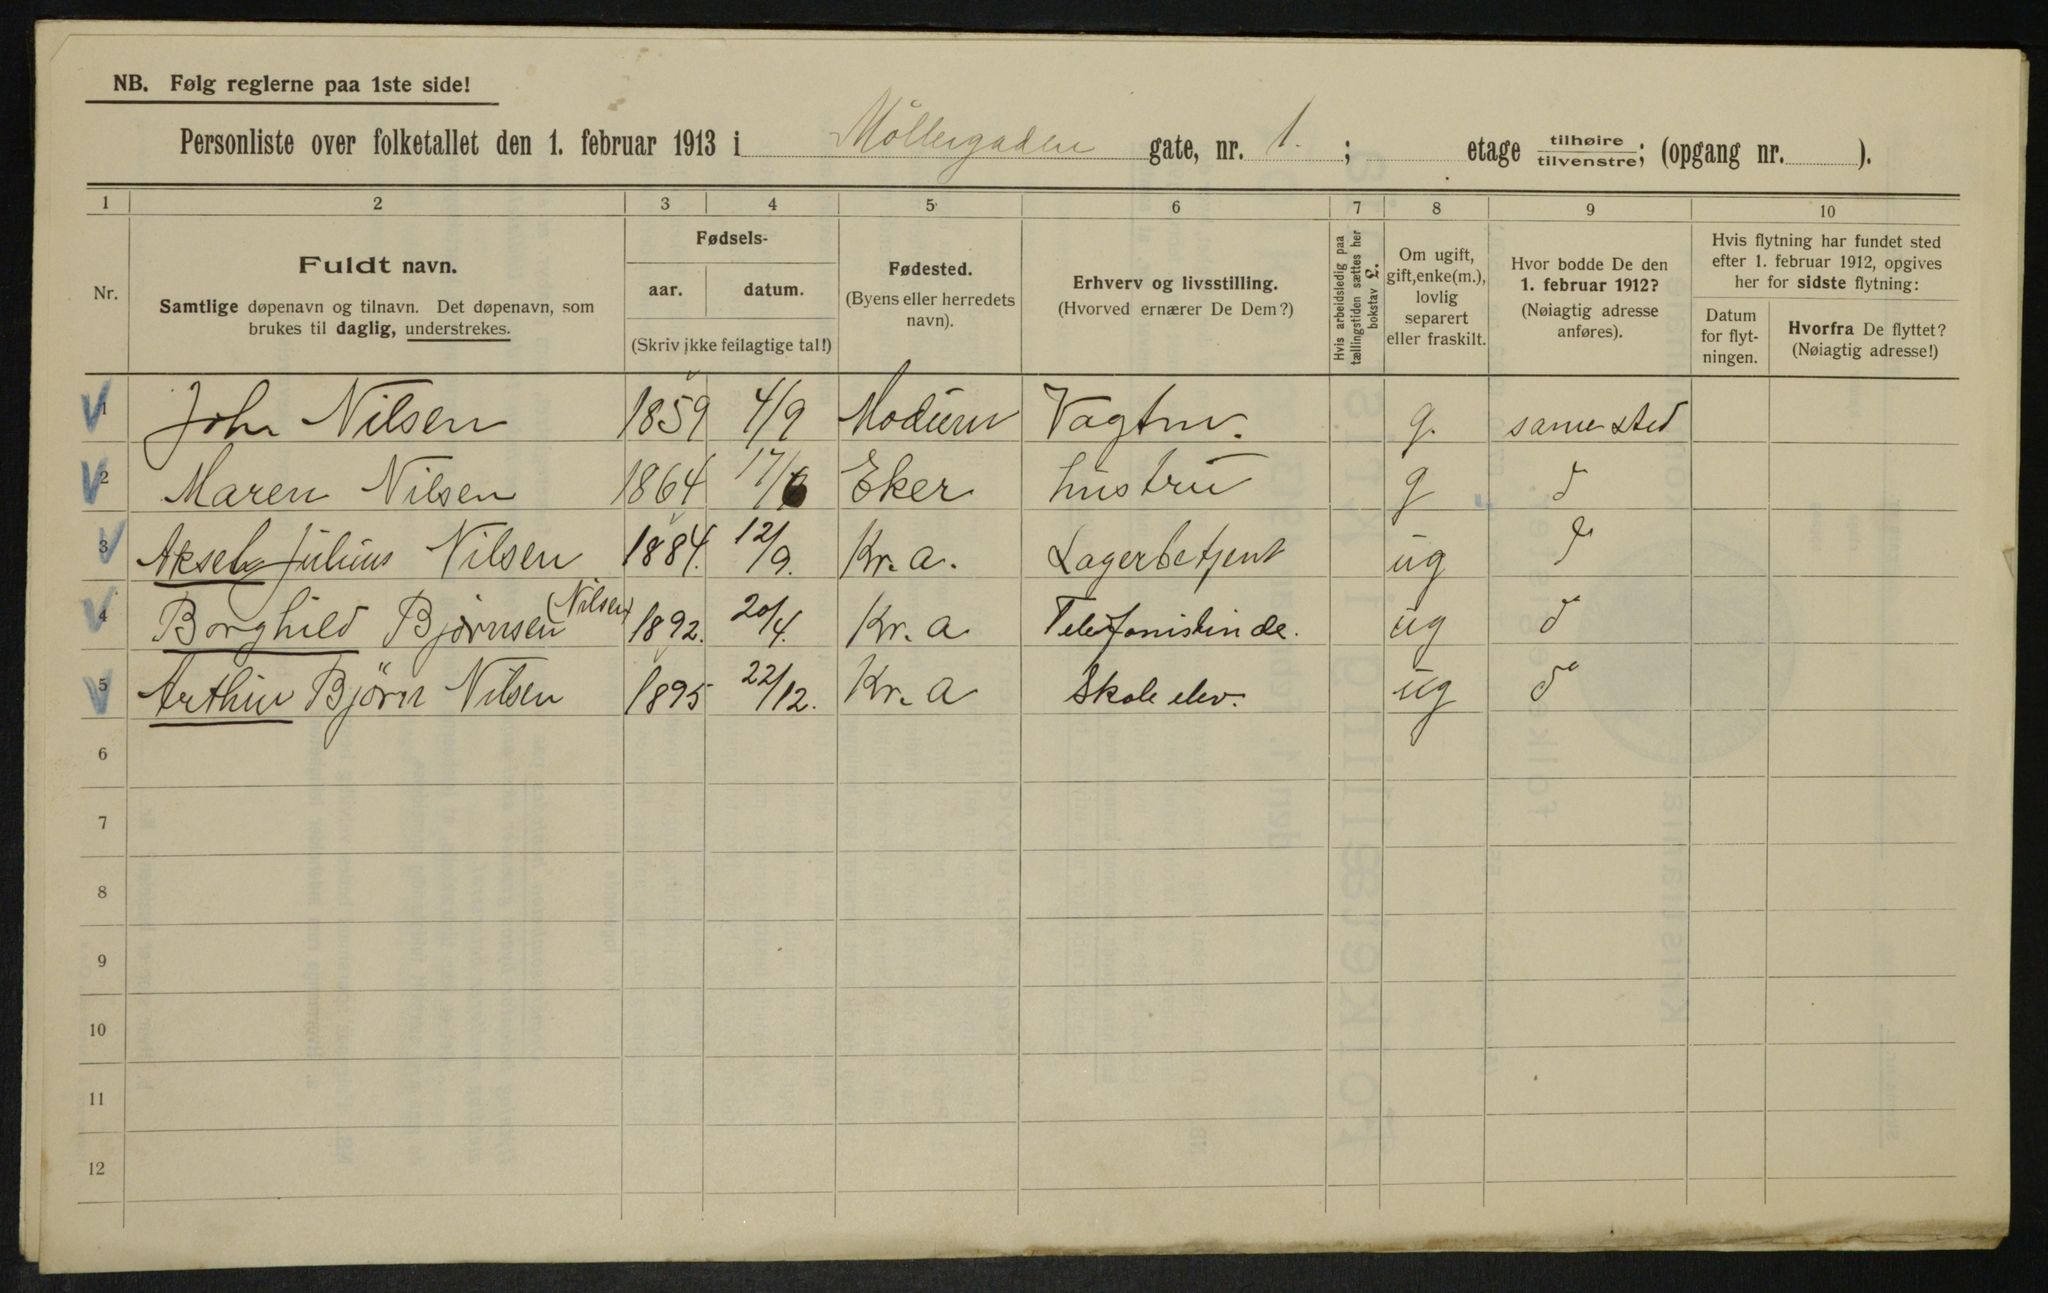 NB. Følg reglerne paa 1ste side!
Personliste over folketallet den 1. februar 1913 i Møllergaden gate, nr. 1. ; etage tilhøire tilvenstre; (opgang nr. ).
1 2 3 4 5 6 7 8 9 10
Nr.
Fuldt navn.
Samtlige døpenavn og tilnavn. Det døpenavn, som
brukes til daglig, understrekes.
Fødsels-
aar. datum.
(Skriv ikke feilagtige tal!)
Fødested.
(Byens eller herredets
navn).
Erhverv og livsstilling.
(Hvorved ernærer De Dem?)
Hvis arbeidsledig paa
tællingstiden sættes her
bokstav L.
Om ugift,
gift, enke(m.),
lovlig
separert
eller fraskilt.
Hvor bodde De den
1. februar 1912?
(Nøiagtig adresse
anføres).
Hvis flytning har fundet sted
efter 1. februar 1912, opgives
her for sidste flytning:
Datum
for flyt-
ningen.
Hvorfra De flyttet?
(Nøiagtig adresse!)
1 John Nilsen 1859 4/9 Modum Vagtm. g. samested
2 Maren Nilsen 1864 17/6 Eker hustru g d
3 Aksel Julius Nilsen 1884. 12/9. Kr.a. Lagerbetjent ug d
4 Borghild Bjørnsen (Nilsen) 1892. 20/4. Kr.a Telefonistinde. ug d
5 Arthur Bjørn Nilsen 1895 22/12. Kr.a Skoleelev. ug d
6
7
8
9
10
11
12